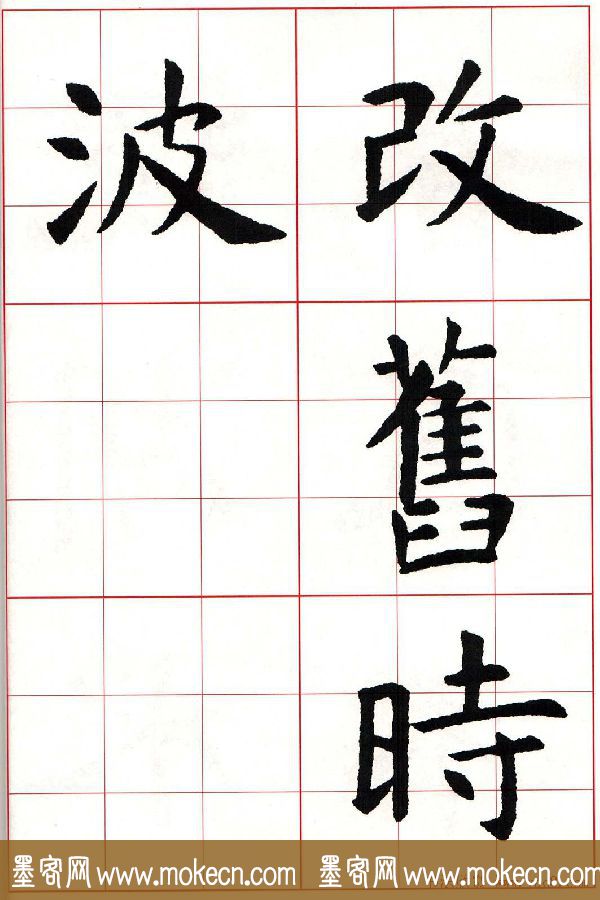 改舊時
波
墨客网 www.mokecn.com 墨客网 www.mokecn.com